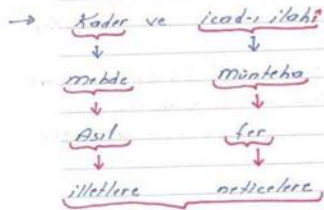 → Kader ve icad-ı ilahî
↓ ↓
mebde Münteha
↓ ↓
Asıl fer
↓ ↓
illetlere neticelere